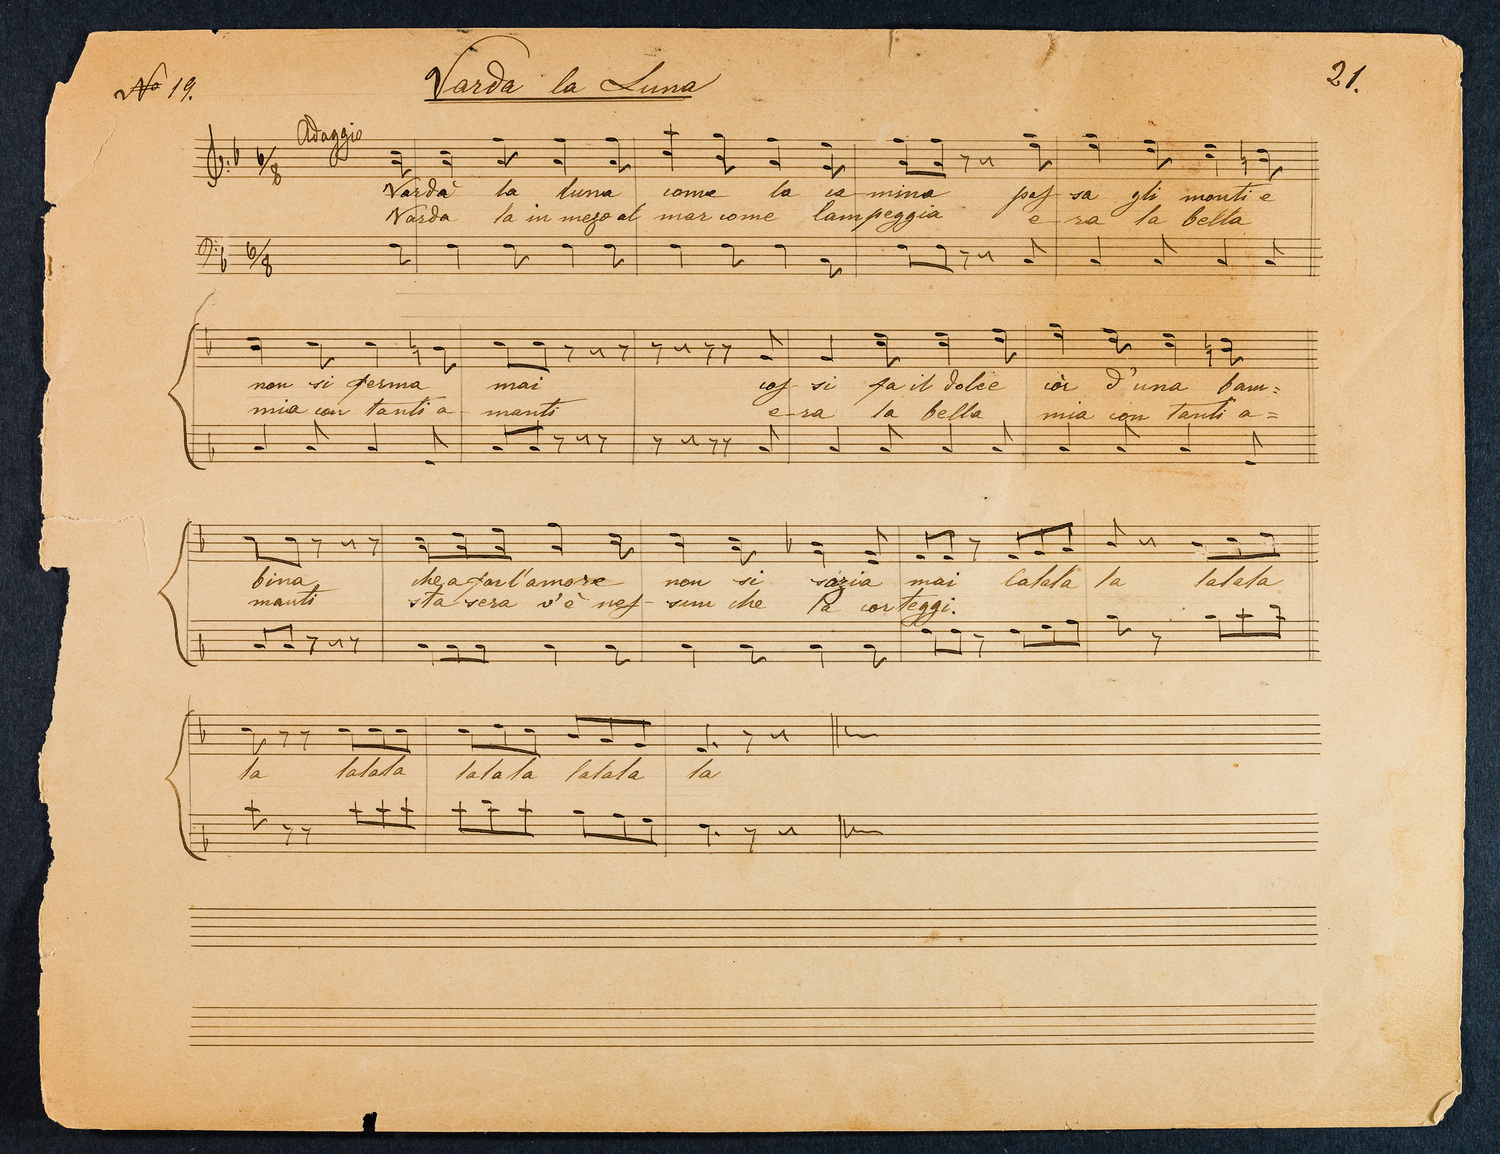 No 19.
Varda la Luna
21.
Adagio
6/8
Varda la luna come la ca-mina pas-sa gli monti e
Varda la in mezo al mar come lampeggia e-ra la bella
6/8
non si ferma mai cos-si fa il dolce còr d'una bam=
mia con tanti a-manti e-ra la bella mia con tanti a=
bina che a far l'amore non si sazia mai lalala la lalala
manti sta sera v'è nes-sun che la corteggi.
la lalala lalala lalala la